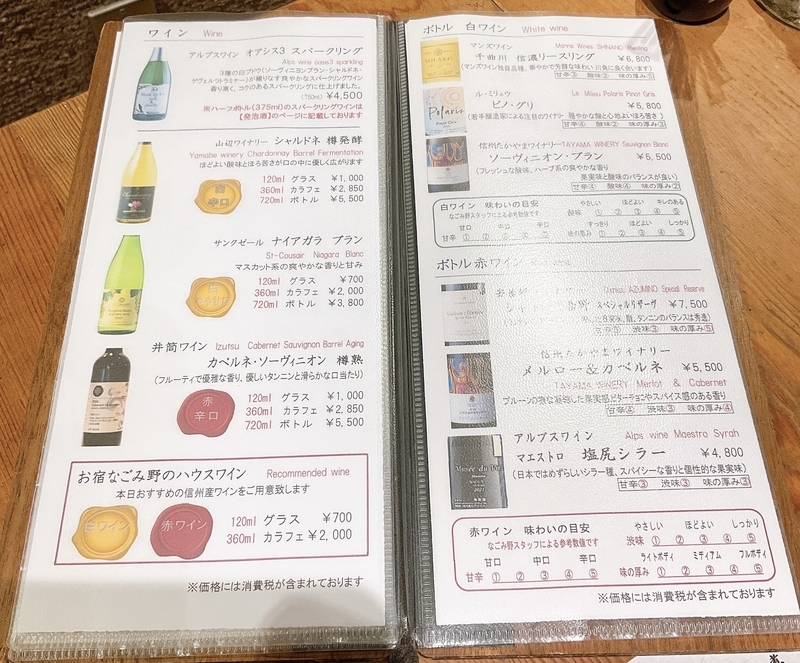 ワイン Wine
アルプスワイン オアシス3 スパークリング
Alps wine oasis3 sparkling
3種の白ブドウ(ソーヴィニヨンブラン・シャルドネ・
ゲヴェルツトラミネール)が織りなす爽やかなスパークリングワイン
香り高く、コクのあるスパークリングに仕上げました。
(750ml) ¥4,500
※ハーフボトル(375ml)のスパークリングワインは
【発泡酒】のページに記載しております
山辺ワイナリー シャルドネ 樽発酵
Yamabe winery Chardonnay Barrel Fermentation
ほどよい酸味とほろ苦さが口の中に優しく広がります
白
辛口
120ml グラス ¥1,000
360ml カラフェ ¥2,850
720ml ボトル ¥5,500
サンクゼール ナイアガラ ブラン
St-Cousair Niagara Blanc
マスカット系の爽やかな香りと甘み
白
120ml グラス ¥700
360ml カラフェ ¥2,000
720ml ボトル ¥3,800
井筒ワイン Izutsu Cabernet Sauvignon Barrel Aging
カベルネ・ソーヴィニオン 樽熟
(フルーティで優雅な香り、優しいタンニンと滑らかな口当たり)
赤
辛口
120ml グラス ¥1,000
360ml カラフェ ¥2,850
720ml ボトル ¥5,500
お宿なごみ野のハウスワイン Recommended wine
本日おすすめの信州産ワインをご用意致します
白ワイン 赤ワイン
120ml グラス ¥700
360ml カラフェ ¥2,000
※価格には消費税が含まれております
ボトル 白ワイン White wine
マンズワイン Manns Wines SHINANO Riesling
千曲川 信濃リースリング ¥6,800
(マンズワイン独自品種、華やかで芳醇な味わい 川魚に良く合います)
甘辛③ 酸味③ 味の厚み③
ル・ミリュウ Le Milieu Polaris Pinot Gris
ピノ・グリ ¥5,800
(若手醸造家による注目のワイナリー 穏やかな酸と心地よいほろ苦さ)
甘辛④ 酸味② 味の厚み③
信州たかやまワイナリー TAYAMA WINERY Sauvignon Blanc
ソーヴィニオン・ブラン ¥5,500
(フレッシュな酸味、ハーブ系の爽やかな香り
果実味と酸味のバランスが良い)
甘辛④ 酸味④ 味の厚み②
白ワイン 味わいの目安 やさしい ほどよい キレのある
なごみ野スタッフによる参考数値です 酸味 ① ② ③ ④ ⑤
甘口 中口 辛口 すっきり ほどよい しっかり
甘辛 ① ② ③ ④ ⑤ 味の厚み ① ② ③ ④ ⑤
ボトル 赤ワイン
AZUMINO Special Reserve
スペシャルリザーヴ ¥7,500
酸、タンニンのバランスは秀逸)
甘辛⑤ 渋味③ 味の厚み⑤
信州たかやまワイナリー
メルロー&カベルネ ¥5,500
TAYAMA WINERY Merlot & Cabernet
甘辛④ 渋味③ 味の厚み④
アルプスワイン Alps wine Maestro Syrah
マエストロ 塩尻シラー ¥4,800
(日本ではめずらしいシラー種、スパイシーな香りと個性的な果実味)
甘辛③ 渋味③ 味の厚み③
赤ワイン 味わいの目安 やさしい ほどよい しっかり
なごみ野スタッフによる参考数値です 渋味 ① ② ③ ④ ⑤
甘口 中口 辛口 ライトボディ ミディアム フルボディ
甘辛 ① ② ③ ④ ⑤ 味の厚み ① ② ③ ④ ⑤
※価格には消費税が含まれております